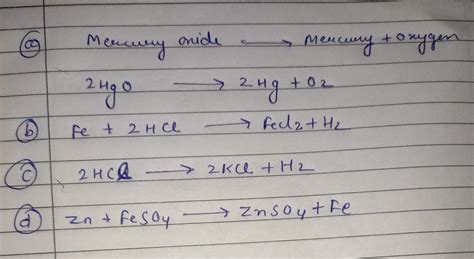 (a) Mercury oxide → Mercury + Oxygen
2HgO → 2Hg + O2
(b) Fe + 2HCl → FeCl2 + H2
(c) 2HCl → 2KCl + H2
(d) Zn + FeSO4 → ZnSO4 + Fe